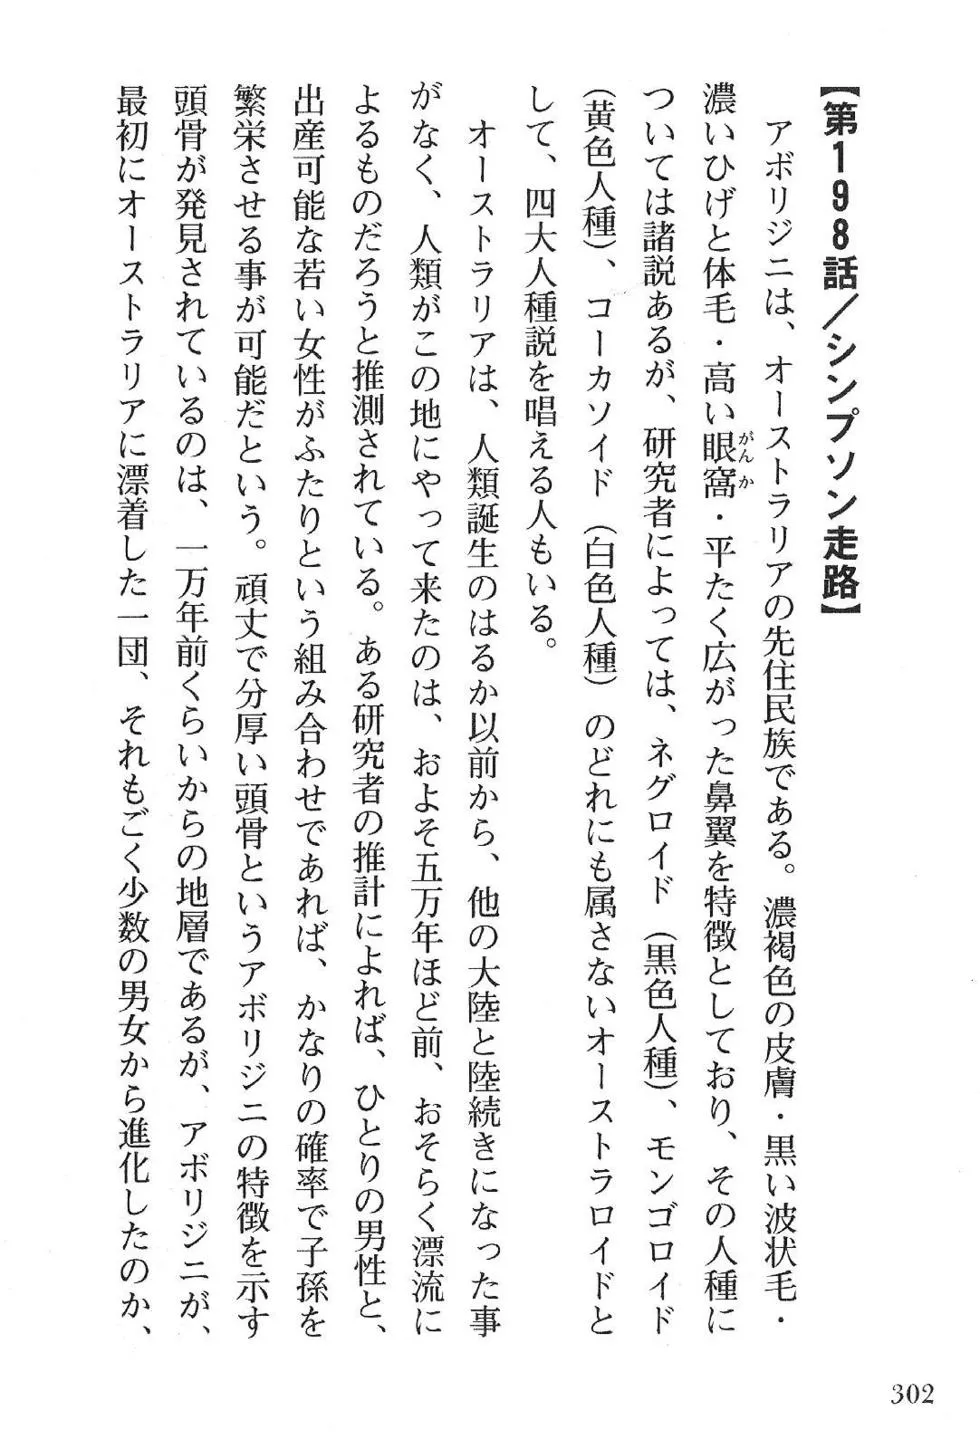 【第198話／シンプソン走路】
アボリジニは、オーストラリアの先住民族である。濃褐色の皮膚・黒い波状毛・
濃いひげと体毛・高い眼窩・平たく広がった鼻翼を特徴としており、その人種に
がんか
ついては諸説あるが、研究者によっては、ネグロイド（黒色人種）、モンゴロイド
（黄色人種）、コーカソイド（白色人種）のどれにも属さないオーストラロイドと
して、四大人種説を唱える人もいる。
オーストラリアは、人類誕生のはるか以前から、他の大陸と陸続きになった事
がなく、人類がこの地にやって来たのは、およそ五万年ほど前、おそらく漂流に
よるものだろうと推測されている。ある研究者の推計によれば、ひとりの男性と、
出産可能な若い女性がふたりという組み合わせであれば、かなりの確率で子孫を
繁栄させる事が可能だという。頑丈で分厚い頭骨というアボリジニの特徴を示す
頭骨が発見されているのは、一万年前くらいからの地層であるが、アボリジニが、
最初にオーストラリアに漂着した一団、それもごく少数の男女から進化したのか、
302